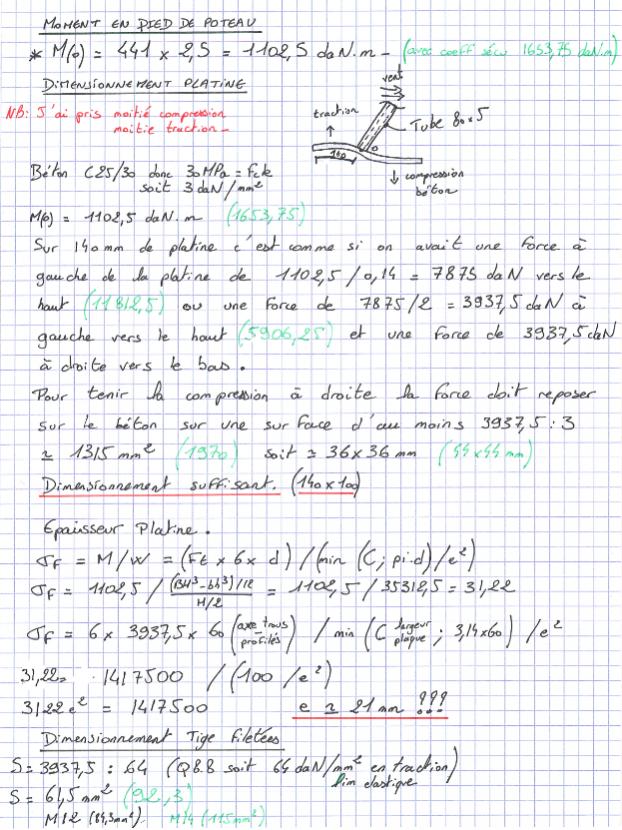 MOMENT EN PIED DE POTEAU
* M(o) = 441 x 2,5 = 1102,5 daN.m - (avec coeff sécu 1653,75 daN.m)
DIMENSIONNEMENT PLATINE
vent
NB: J'ai pris moitié compression
moitié traction -
traction
Tube 80x5
140
o
compression
béton
Béton C25/30 donc 30MPa = Fck
soit 3 daN/mm²
M(o) = 1102,5 daN.m (1653,75)
Sur 140mm de platine c'est comme si on avait une force à
gauche de la platine de 1102,5/0,14 = 7875 daN vers le
haut (11812,5) ou une force de 7875/2 = 3937,5 daN à
gauche vers le haut (5906,25) et une force de 3937,5daN
à droite vers le bas.
Pour tenir la compression à droite la force doit reposer
sur le béton sur une surface d'au moins 3937,5 : 3
≃ 1315 mm² (1970) soit ≃ 36x36 mm (44x44 mm)
Dimensionnement suffisant. (140x100)
Epaisseur Platine.
σF = M/W = (Ft x 6 x d) / (min (C; pi.d)/e²)
σF = 1102,5 / (BH³-bh³)/12 / H/2 = 1102,5 / 35312,5 = 31,22
σF = 6 x 3937,5 x 60 (axe trous profilés) / min (C largeur plaque ; 3,14x60) /e²
31,22= 1417500 / (100 /e²)
3122e² = 1417500 e ≃ 21mm !!!
Dimensionnement Tige filetées
S = 3937,5 : 64 (Q8.8 soit 64 daN/mm² en traction)
lim elastique
S = 61,5mm² (92,3)
M12 (84,3mm²) M14 (115mm²)